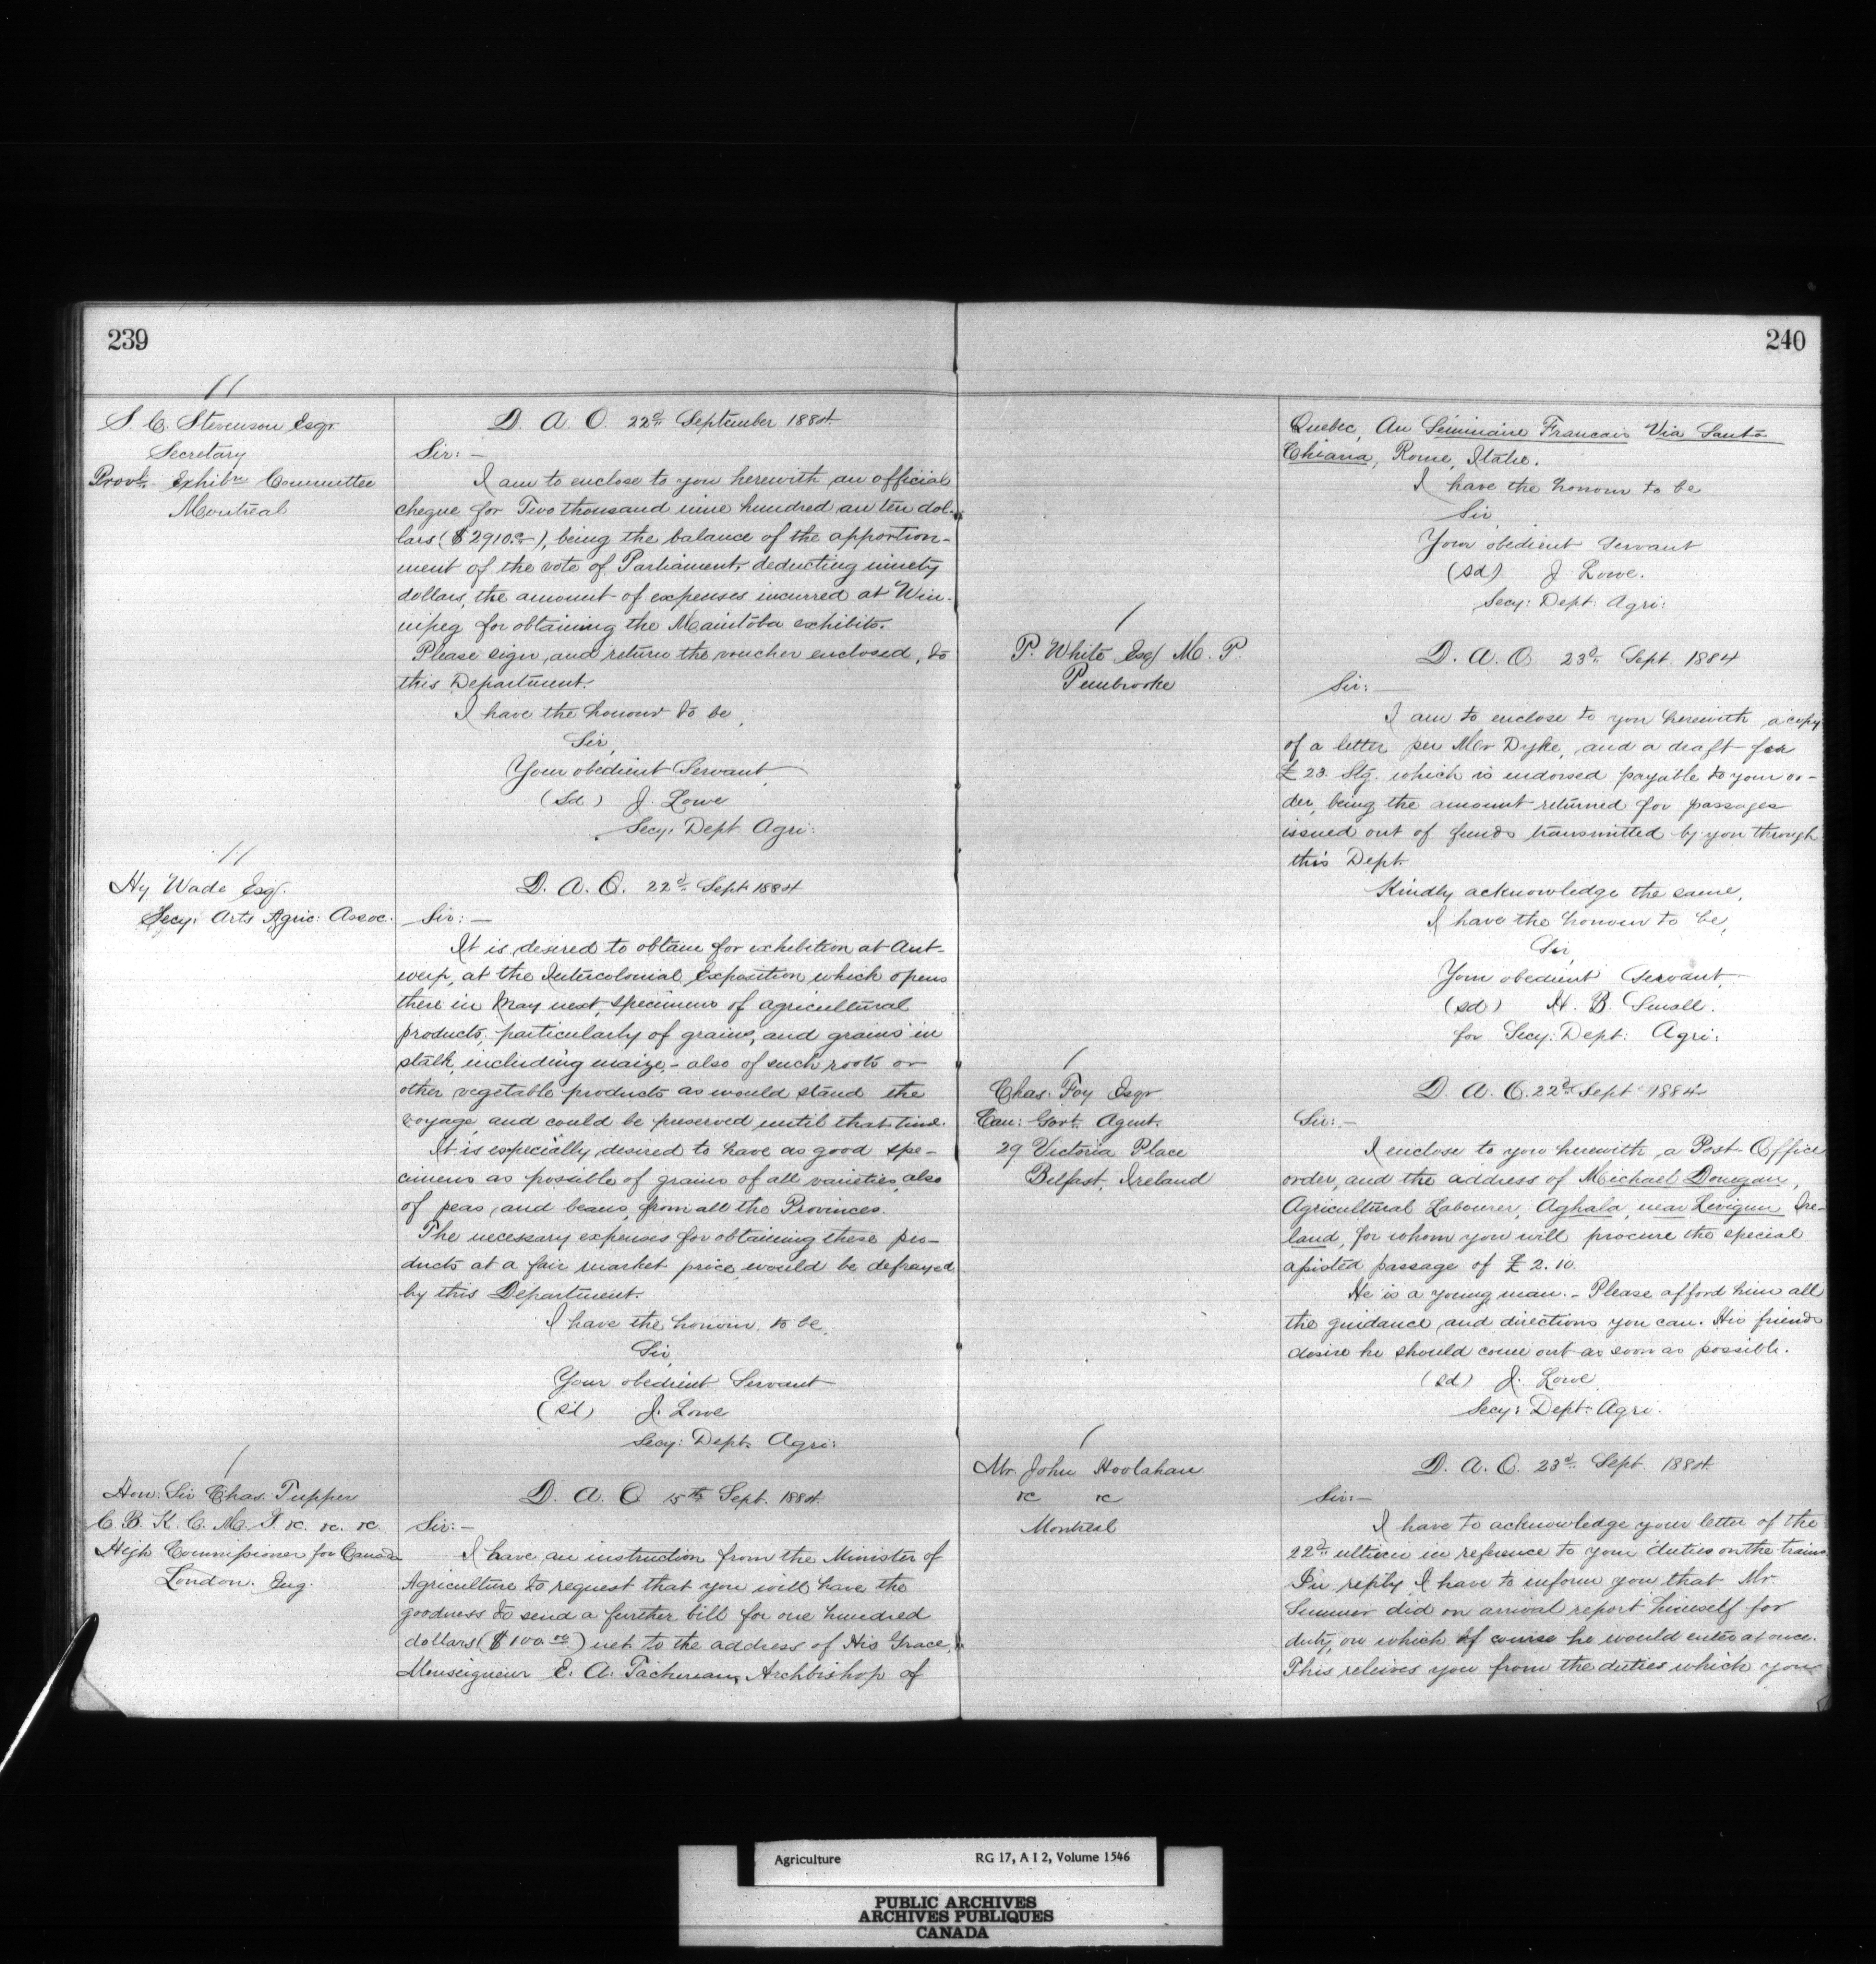 239
S. C. Stevenson Esqr
Secretary
Provl. Exhibn Committee
Montreal
D. A. O. 22d September 1884.
Sir: —
I am to enclose to you herewith an official
cheque for Two thousand nine hundred an ten dol-
lars ($2910.00), being the balance of the apportion-
ment of the vote of Parliament, deducting ninety
dollars, the amount of expenses incurred at Win-
nipeg for obtaining the Manitoba exhibits.
Please sign, and return the voucher enclosed, to
this Department.
I have the honour to be,
Sir,
Your obedient Servant
(Sd) J. Lowe
Secy: Dept. Agri:
Hy Wade Esq.
Secy: Arts Agric: Assoc.
D. A. O. 22d Sept 1884
Sir: —
It is desired to obtain for exhibition at Ant-
werp, at the Intercolonial Exposition which opens
there in May next, specimens of agricultural
products, particularly of grains, and grains in
stalk, including maize, - also of such roots or
other vegetable products as would stand the
voyage and could be preserved until that time.
It is especially desired to have as good spe-
cimens as possible of grains of all varieties, also
of peas, and beans, from all the Provinces.
The necessary expenses for obtaining these pro-
ducts at a fair market price, would be defrayed
by this Department.
I have the honour to be,
Sir,
Your obedient Servant
(sd) J. Lowe
Secy: Dept. Agri:
Hon: Sir Chas. Tupper
C. B. K. C. M. G. &c. &c. &c
High Commissioner for Canada
London. Eng.
D. A. O 15th Sept. 1884.
Sir: —
I have an instruction from the Minister of
Agriculture to request that you will have the
goodness to send a further bill for one hundred
dollars ($100.00) net to the address of His Grace,
Monseigneur E. A. Tachereau, Archbishop of
240
Quebec, Au Séminaire Francais Via Santa
Chiara, Rome, Italie.
I have the honour to be
Sir
Your obedient Servant
(sd) J. Lowe.
Secy: Dept: Agri:
P. White Esq M. P.
Pembrooke
D. A. O. 23d Sept. 1884
Sir: —
I am to enclose to you herewith a copy
of a letter per Mr Dyke, and a draft for
£23. Stg. which is endorsed payable to your or-
der, being the amount returned for passages
issued out of funds transmitted by you through
this Dept.
Kindly acknowledge the same,
I have the honour to be,
Sir,
Your obedient Servant,
(sd) H. B. Small.
for Secy: Dept: Agri:
Chas. Foy Esqr
Can: Govt. Agent.
29 Victoria Place
Belfast, Ireland
D. A. O. 22d Sept 1884
Sir: —
I enclose to you herewith, a Post-Office
order, and the address of Michael Donegan,
Agricultural Labourer, Aghala, near Ire-
land, for whom you will procure the special
assisted passage of £2.10.
He is a young man. - Please afford him all
the guidance, and directions you can. His friends
desire he should come out as soon as possible.
(sd) J. Lowe
Secy: Dept: Agri.
Mr. John Hoolahan
&c &c
Montreal
D. A. O. 23d Sept. 1884.
Sir: —
I have to acknowledge your letter of the
22d in reference to your duties on the trains
In reply I have to inform you that Mr.
Sumner did on arrival report himself for
duty, on which of course he would enter at once.
This relieves you from the duties which you
Agriculture RG 17, A I 2, Volume 1546
PUBLIC ARCHIVES
ARCHIVES PUBLIQUES
CANADA